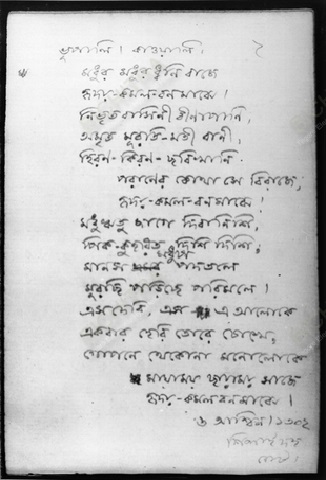 ভূপালি। কাওয়ালি।
মধুর মধুর ধ্বনি বাজে
হৃদয়-কমল-বন মাঝে।
নিভৃতবাসিনী বীণাপাণি,
অমৃত মুরতি-মতী বাণী,
হিরণ-কিরণ-ছবি-খানি
পরাণের কোথা সে বিরাজে,
হৃদয়-কমল-বন মাঝে।
মধুঋতু জাগে দিবানিশি,
পিক-কুহরিত দিশি দিশি,
মানস মধুপ পদতলে
মুরছি পড়িছে পরিমলে।
এস দেবি, এস এ আলোকে
একবার হেরি তোরে চোখে,
গোপনে থেকোনা মনোলোকে
মায়াময় ছায়াময় সাজে
হৃদয়-কমল বন মাঝে।
৬ আশ্বিন। ১৩০২